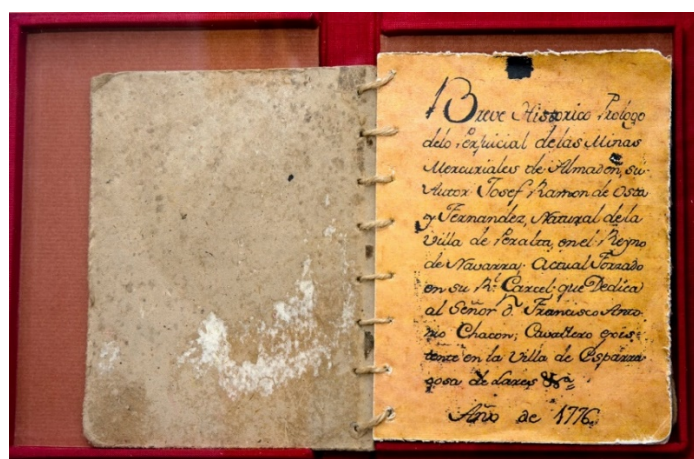 Breve Historico Prologo
delo Perjuicial de las Minas
Mercuriales de Almaden, su
Autor Josef Ramon de Osta
y Fernandez, Natural de la
villa de Peralta, en el Reyno
de Navarra: Actual Forzado
en su Rl. Carcel: que Dedica
al Señor Dn. Francisco Anto-
nio Chacon; Cavallero exis-
tente en la Villa de Esparra-
gosa de Lares &a.
Año de 1776.